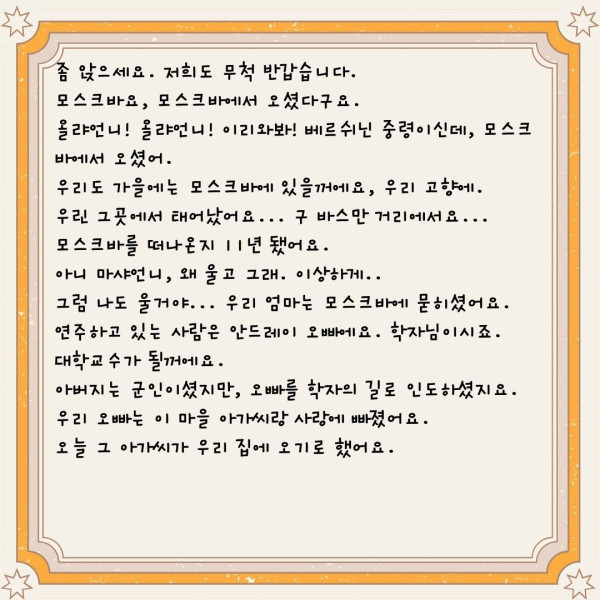 좀 앉으세요. 저희도 무척 반갑습니다.
모스크바요, 모스크바에서 오셨다구요.
올랴언니! 올랴언니! 이리와봐! 베르쉬닌 중령이신데, 모스크
바에서 오셨어.
우리도 가을에는 모스크바에 있을꺼에요, 우리 고향에.
우린 그곳에서 태어났어요... 구 바스만 거리에서요...
모스크바를 떠나온지 11년 됐어요.
아니 마샤언니, 왜 울고 그래. 이상하게..
그럼 나도 울거야... 우리 엄마는 모스크바에 묻히셨어요.
연주하고 있는 사람은 안드레이 오빠에요. 학자님이시죠.
대학교수가 될꺼에요.
아버지는 군인이셨지만, 오빠를 학자의 길로 인도하셨지요.
우리 오빠는 이 마을 아가씨랑 사랑에 빠졌어요.
오늘 그 아가씨가 우리 집에 오기로 했어요.